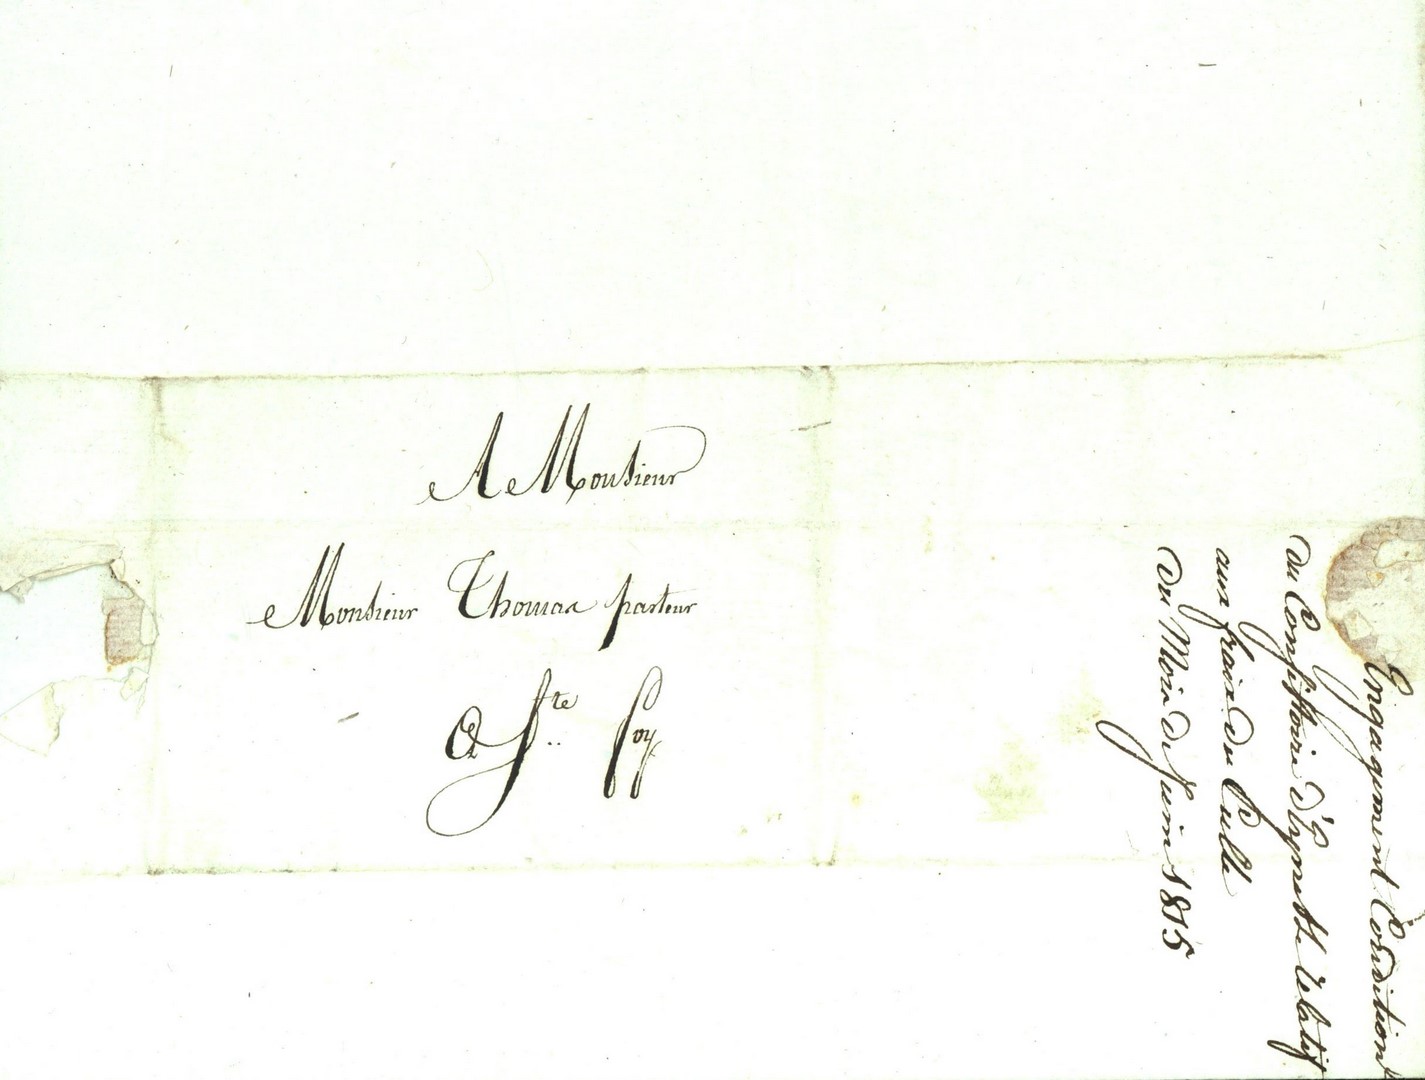 A Monsieur
Monsieur Thomas pasteur
A Ste. Foy
Engagement Conditionel
du Consistoire d'Eynesse relatif
aux frais du Culte
du Mois de Juin 1815